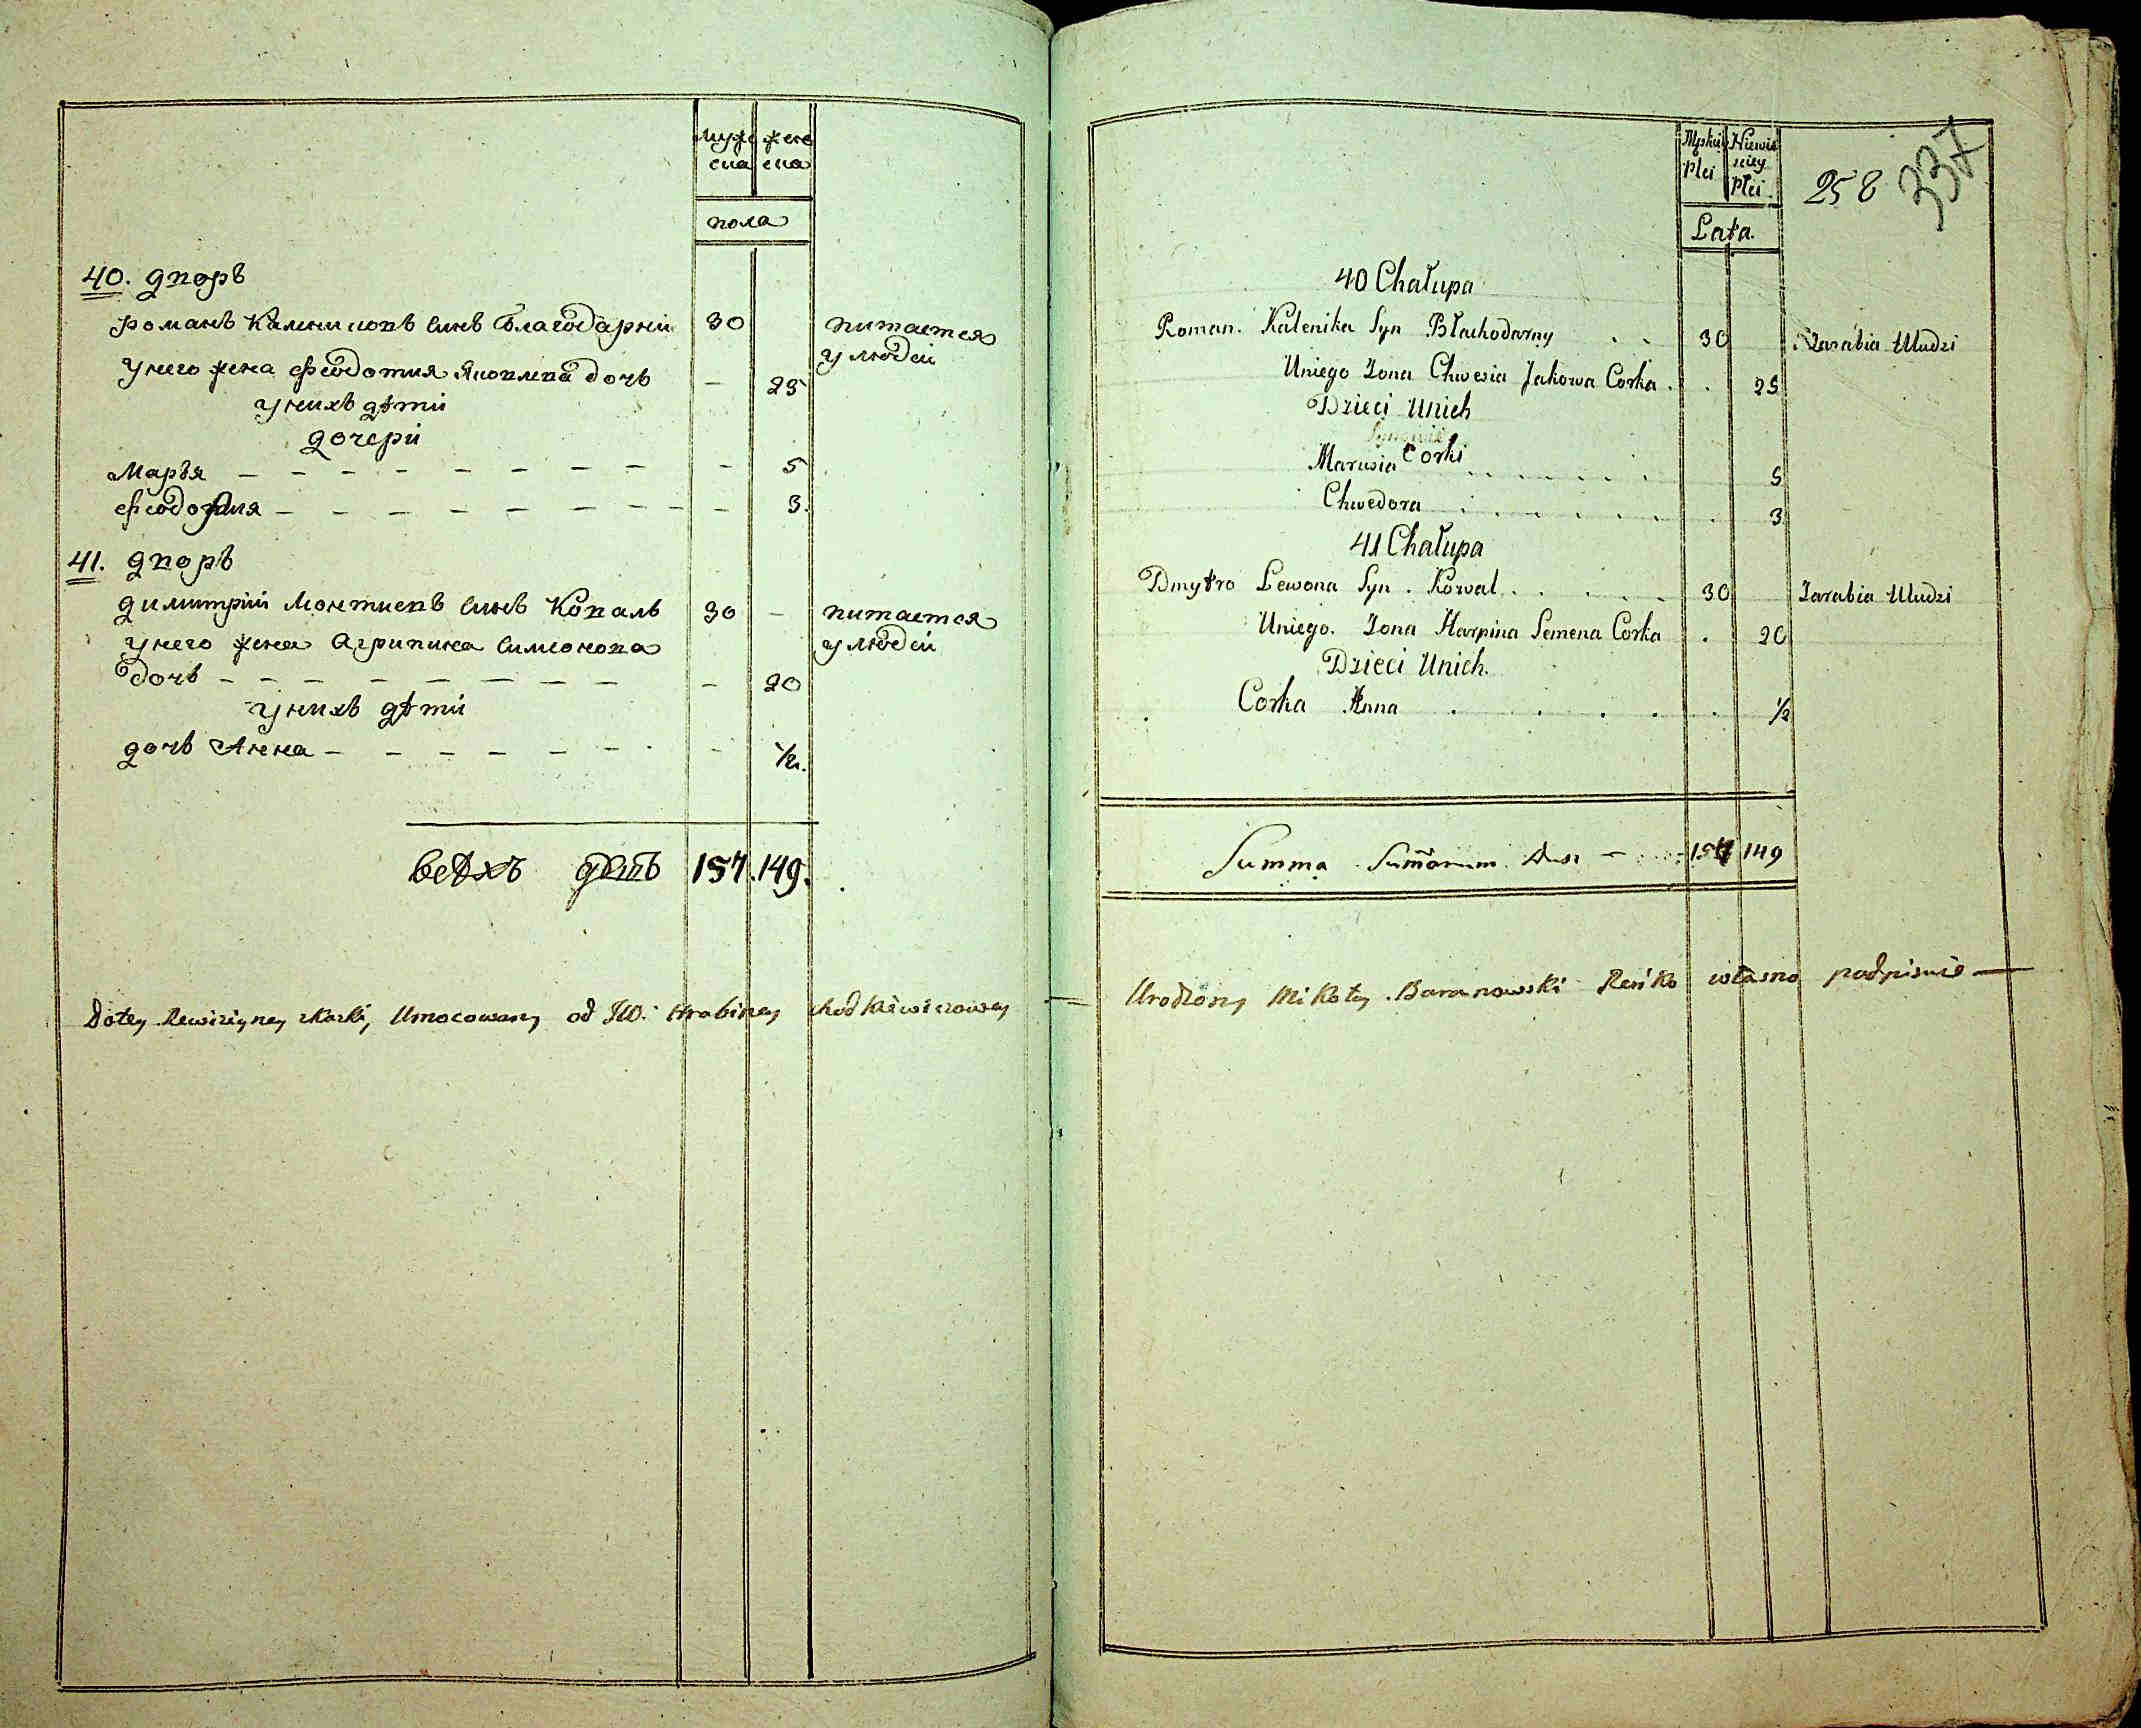 муже жене
ска ска
пола
40. дворъ
романъ Калениковъ синъ Благодарнїи 30 питается
у людеи
унего жена Феодотия Яковлева дочъ — 25
унихъ дѣти
дочери
Маръя — — — — — — — — — — 5
Феодория — — — — — — — — — 3.
41. дворъ
димитрїи Леонтиевъ синъ Коваль 30 — питается
унего жена Агрипина Симеонова у людеи
дочъ — — — — — — — — — 20
унихъ дѣти
дочъ Анна — — — — — — — — 1/2.
всѣхъ душъ 157. 149.
Dotey Rewizyiney skazki, Umocowany od JW. Hrabiney Chodkiewiczowey
Męskiey Niewie
sciey
Płci Płci.
258 337
Lata.
40 Chałupa
Roman. Kalenika Syn Błachodarny . . 30 Zarabia Uludzi
Uniego Zona Chwesia Jakowa Corka . . 25
Dzieci Unich
Corki
Marusia . . . . . . 5
Chwedora . . . . . . . 3
41 Chałupa
Dmytro Lewona Syn . Kowal . . . . . 30 Zarabia Uludzi
Uniego. Zona Harpina Semena Corka . 20
Dzieci Unich.
Corka Anna . . . . . 1/2
Summa Summarum Dusz — 157 149
Urodzony Mikołay Baranowski Ręńko własno podpisuie —